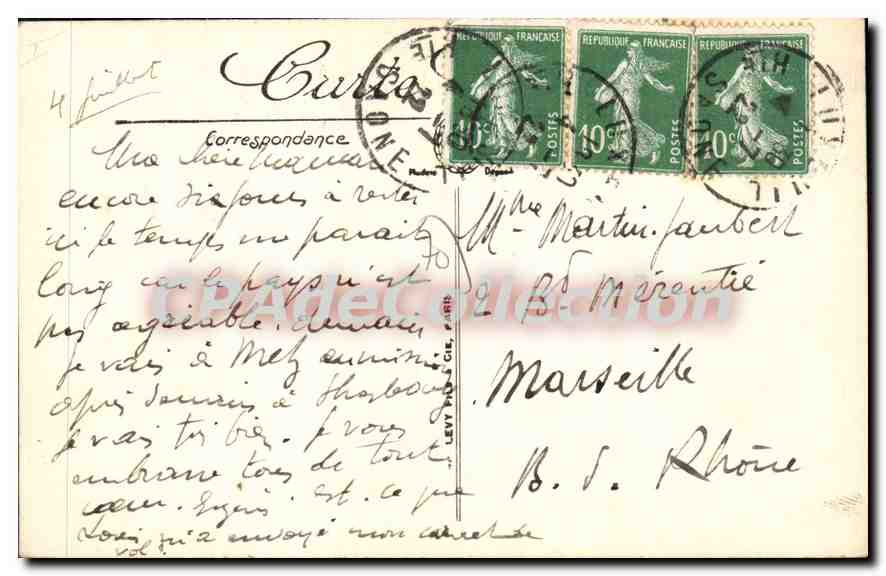 4 juillet
Carte
Correspondance
RÉPUBLIQUE FRANÇAISE
10c POSTES
RÉPUBLIQUE FRANÇAISE
10c POSTES
RÉPUBLIQUE FRANÇAISE
10c POSTES
Modèle Déposé
Ma chère
encore dix jours à rester
ici le temps me parait
long car le pays n'est
pas agréable. demain
je vais à Metz en mission
après demain à Strasbourg
je vais très bien. Je vous
embrasse tous de tout
cœur. est-ce que
Louis m'a envoyé mon carnet de
vol
70
LEVY FILS & CIE, PARIS
Mme Martin-Jaubert
2 Bd Mérentié
Marseille
B. d. Rhône
CPAdeCollection